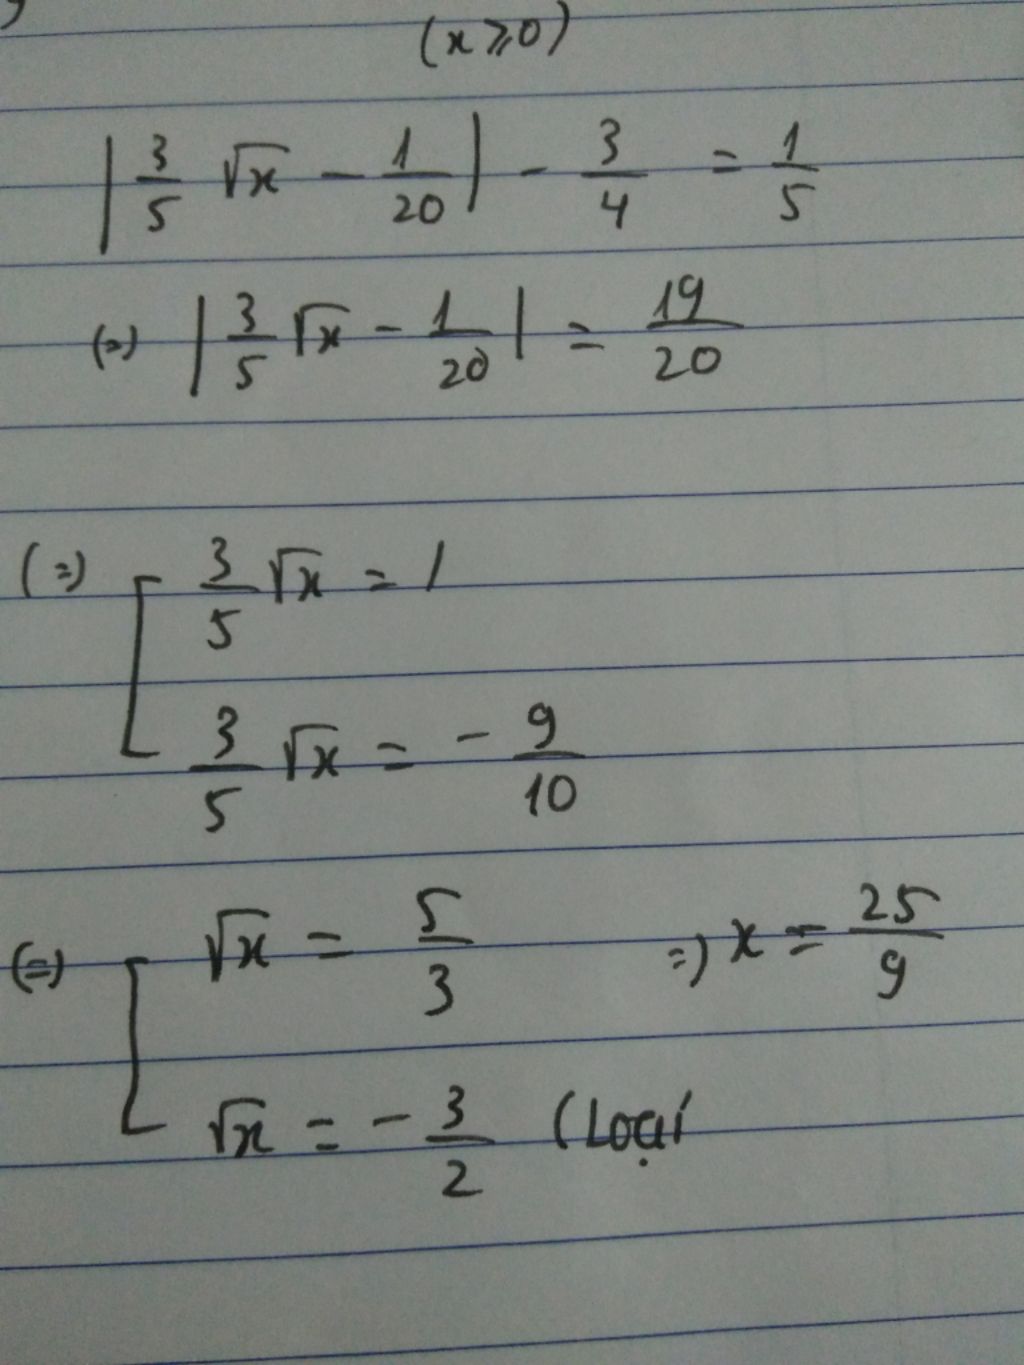 (x ⩾ 0)
|3/5 √x - 1/20| - 3/4 = 1/5
(=) |3/5 √x - 1/20| = 19/20
(=) [ 3/5 √x = 1
3/5 √x = - 9/10
(=) [ √x = 5/3 =) x = 25/9
√x = - 3/2 (Loại